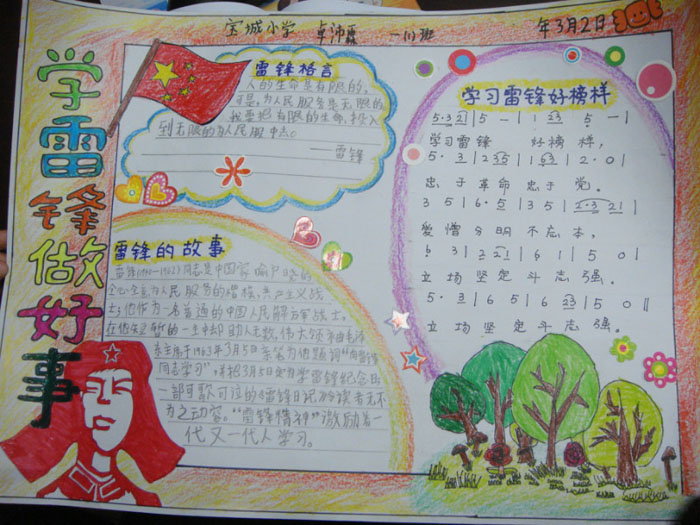 宝城小学 卓沛霖 一(1)班 年3月2日
学雷锋做好事
雷锋格言
人的生命是有限的,
可是,为人民服务是无限的
我要把有限的生命,投入
到无限的为人民服中去。
——雷锋
雷锋的故事
同志是中国家
全心全意为人民服务的楷模,共产主义战
士;他作为一名普通的中国人民解放军战士,
在他短暂的一生中却助人无数,伟大领袖毛泽
东主席于1963年3月5日亲笔为他题词"向雷锋
同志学习"并把3月5日定为学雷锋纪念日
一部可歌可泣的《雷锋日记》令读者无不
为之动容。"雷锋精神"激励着一
代又一代人学习。
学习雷锋好榜样
5·3 21|5 — |1 5|5 —|
学习雷锋 好榜样,
5·3|2 35|1 63|2·0|
忠于革命忠于党。
3 5|6·5|3 5|2·3 21|
爱憎分明不忘本,
6 3|2 21|6 1|5 0|
立场坚定斗志强。
5·3|6 5|6 63|5 0‖
立场坚定斗志强。